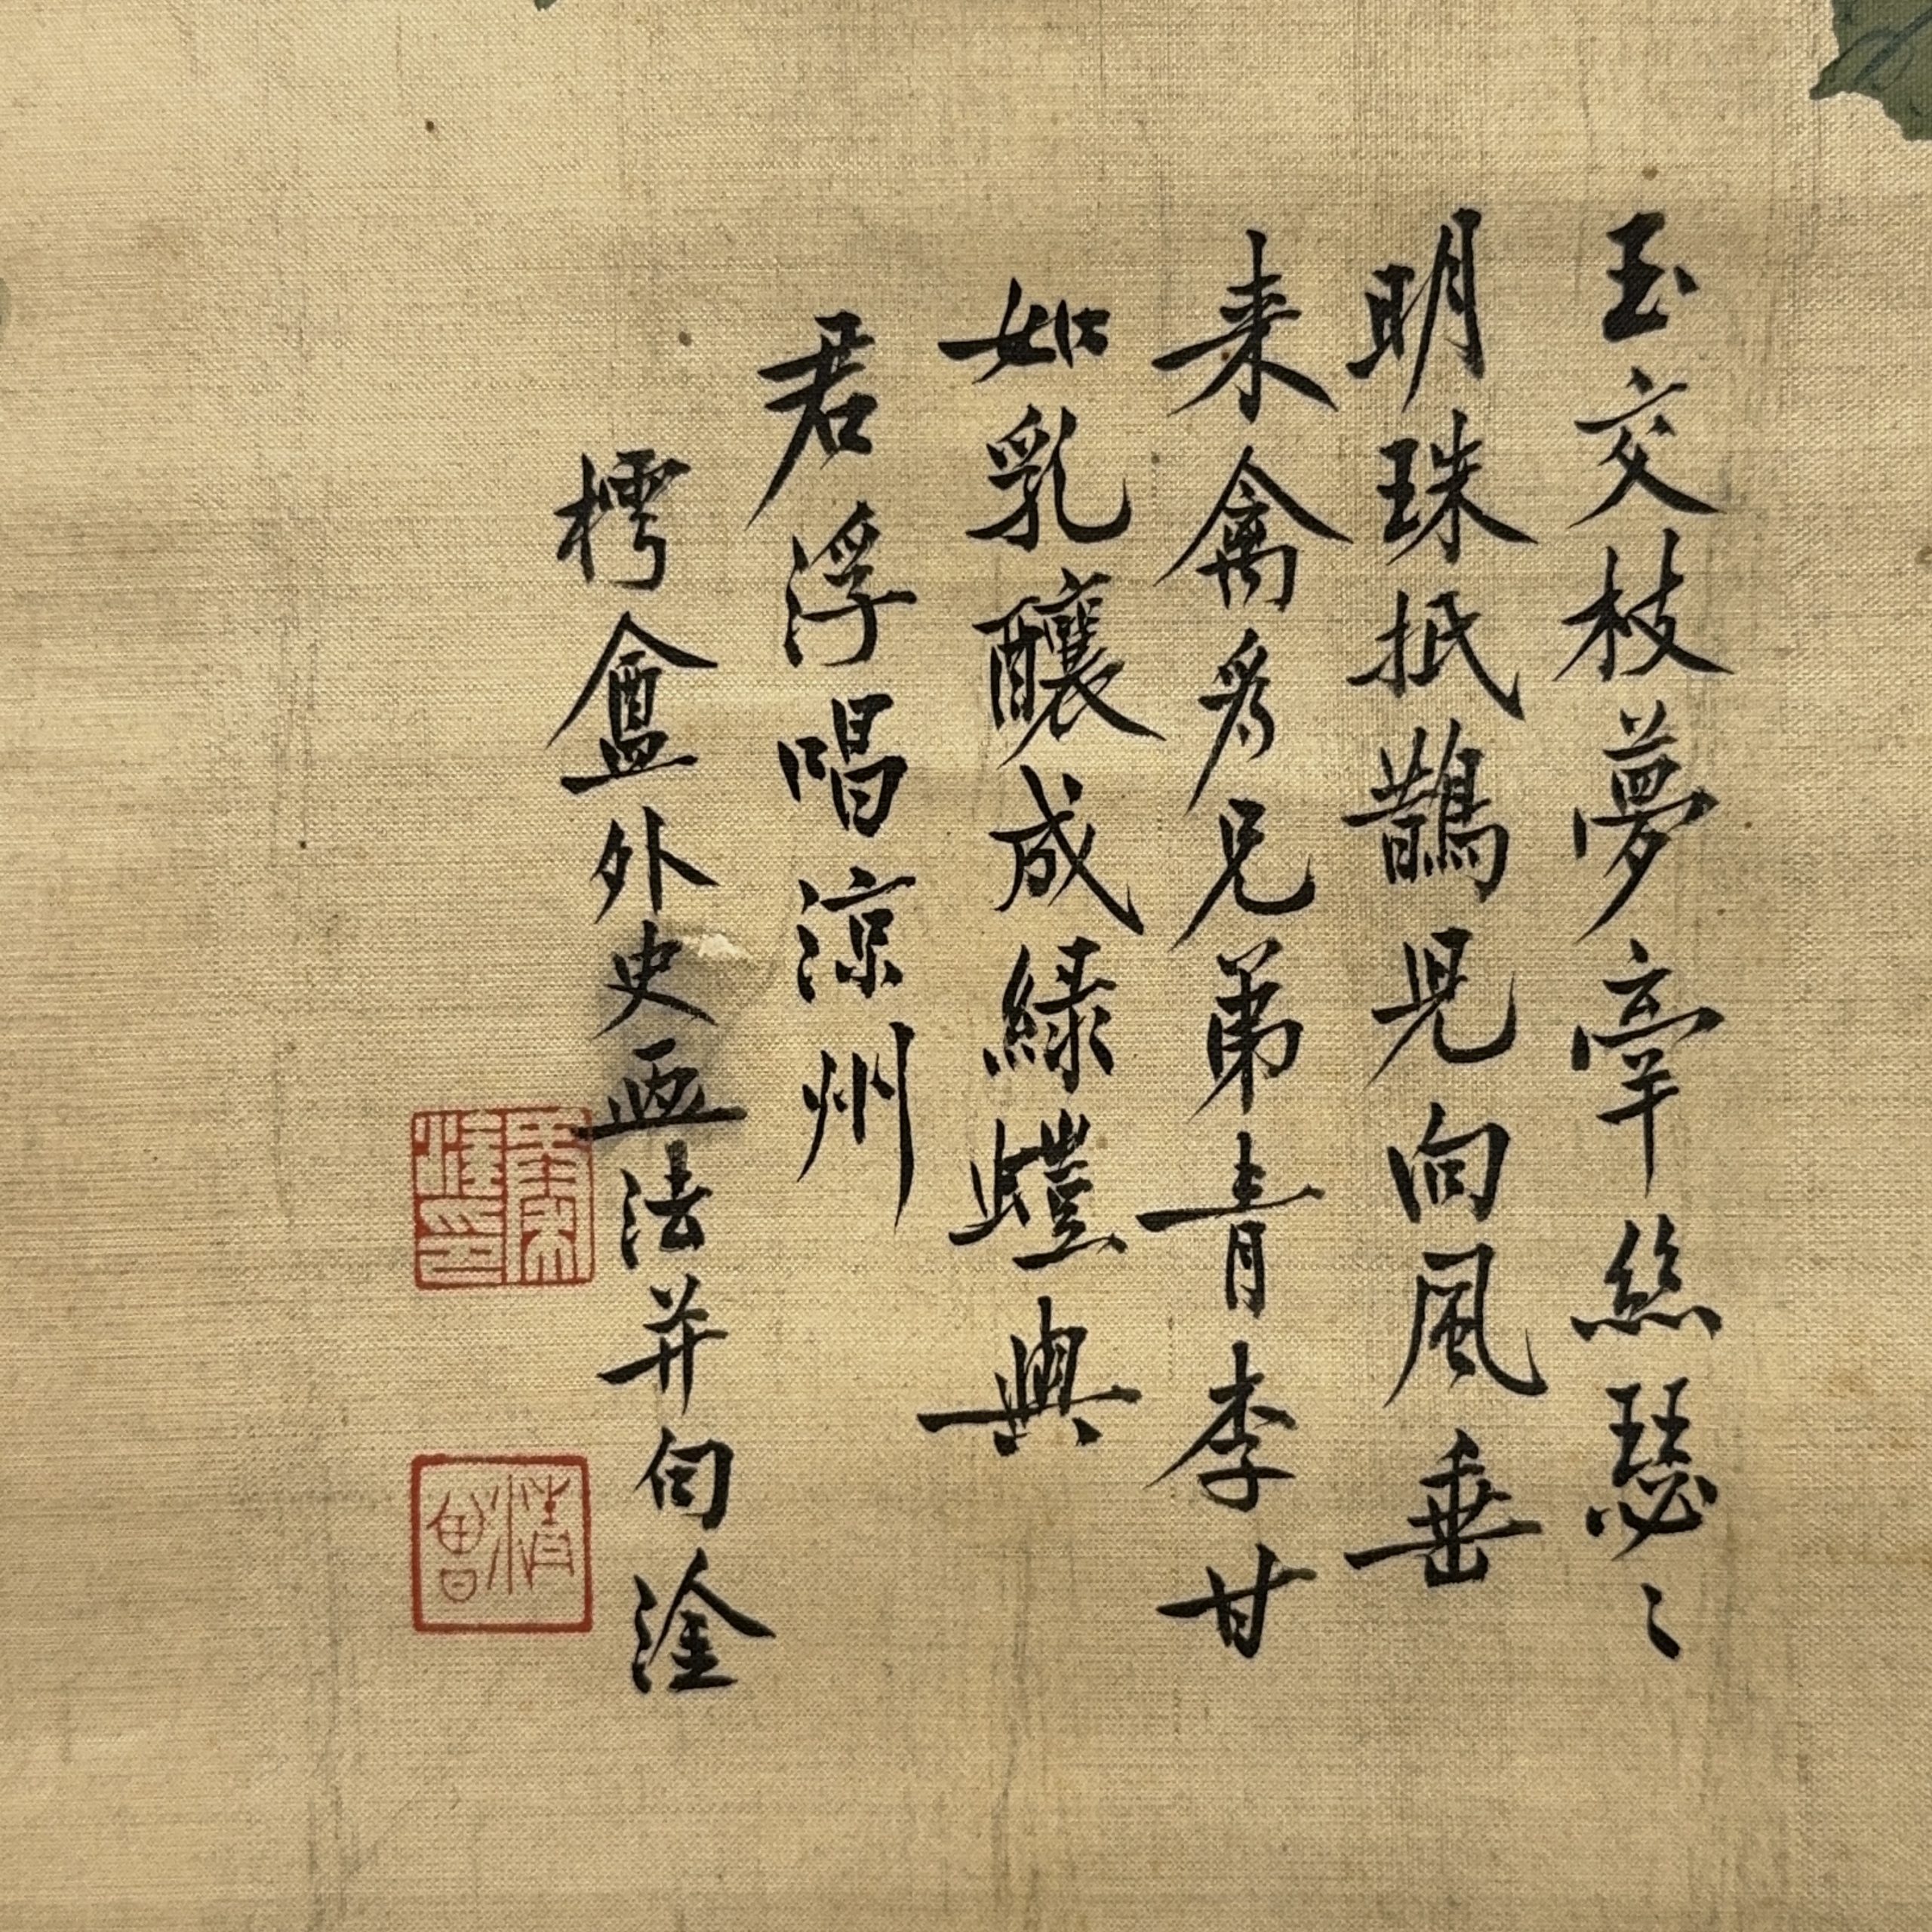 玉交枝夢牽絲瑟〻
明珠抵鵲見向風垂
来禽爲兄弟青李甘
如乳釀成綠螘與
君浮唱涼州
樗盦外史法并句塗